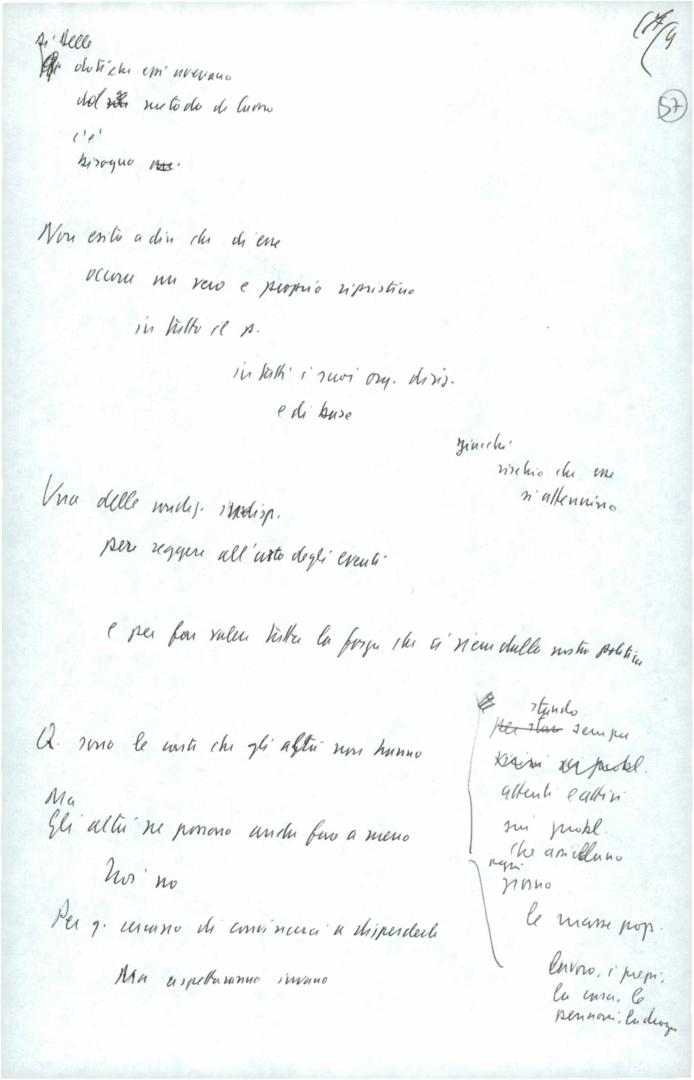 17/4
57
di delle
doti che essi avevano
dal metodo di lavoro
c'è
bisogno
Non esito a dire che di esse
occorre un vero e proprio ripristino
in tutto il p.
in tutti i suoi org. dirig.
e di base
giacché
rischio che esse
si attennino
Una delle condiz. indisp.
per reggere all'urto degli eventi
e per far valere tutta la forza che ci viene dalla nostra politica
Q. sono le cose che gli altri non hanno
Ma
Gli altri ne possono anche fare a meno
Noi no
Per q. cercano di convincerci a disperderle
Ma aspetteranno invano
stando
per stare sempre
attenti e attivi
sui probl.
che assillano
ogni
giorno
le masse pop.
lavoro, i prezzi,
la casa, le
pensioni, la droga